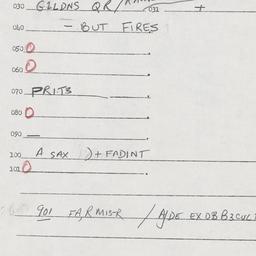 030 GILDNS QR/
032 +
040 - BUT FIRES
050 0
060 0
070 PRITS
080 0
090 —
100 A SAX )+ FADINT
101 0
901 FA,R MISTR / A/DE EX DB B3CUL